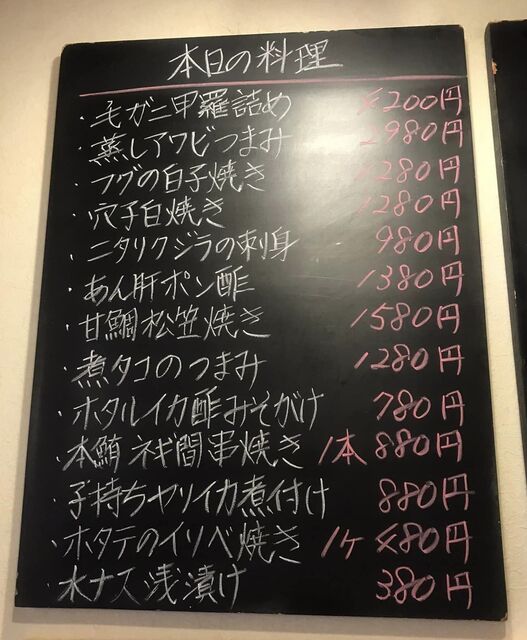 本日の料理
・毛ガニ甲羅詰め 4200円
・蒸しアワビつまみ 2980円
・フグの白子焼き 1280円
・穴子白焼き 1280円
、ニタリクジラの刺身 980円
・あん肝ポン酢 1380円
・甘鯛松笠焼き 1580円
・煮タコのつまみ 1280円
・ホタルイカ酢みそがけ 780円
・本鮪ネギ間串焼き 1本 880円
・子持ちヤリイカ煮付け 880円
・ホタテのイソベ焼き 1ケ 480円
・水ナス浅漬け 380円